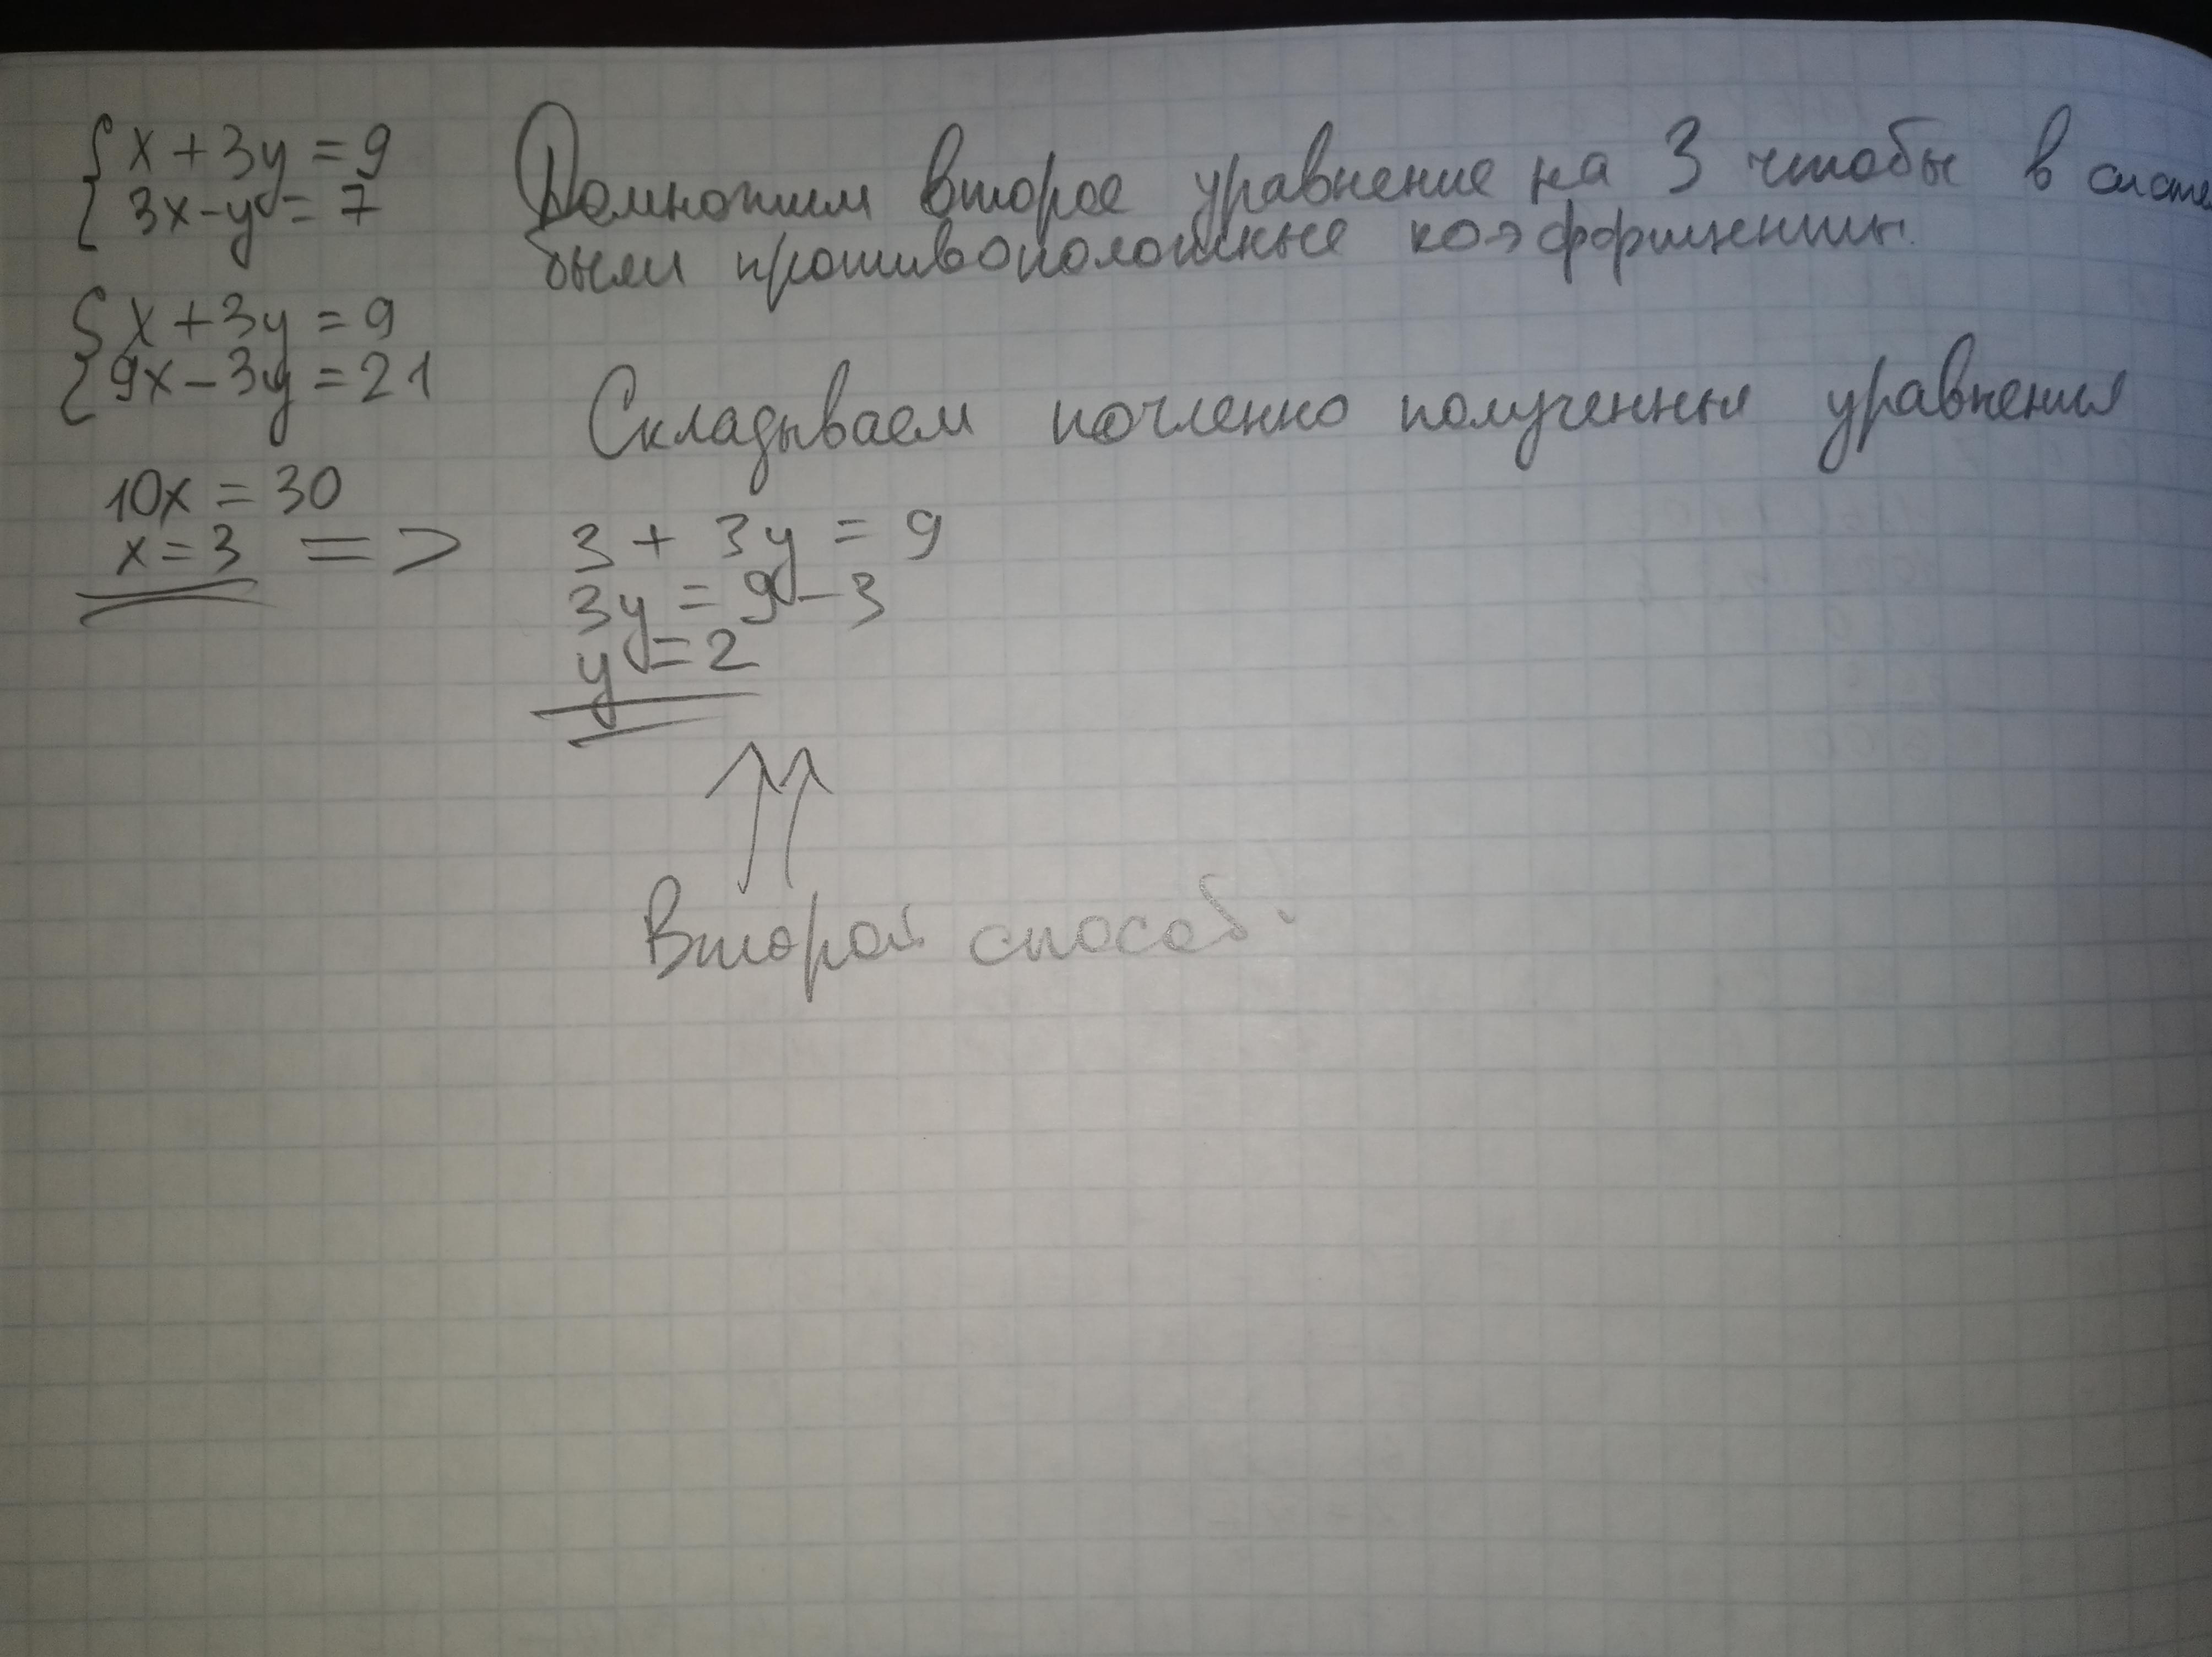 x + 3y = 9
3x - y = 7
Домножим второе уравнение на 3 чтобы в систе
были противоположные коэффициенты.
x + 3y = 9
9x - 3y = 21
Складываем почленно полученные уравнения
10x = 30
x = 3 =>
3 + 3y = 9
3y = 9 - 3
y = 2
Второй способ.